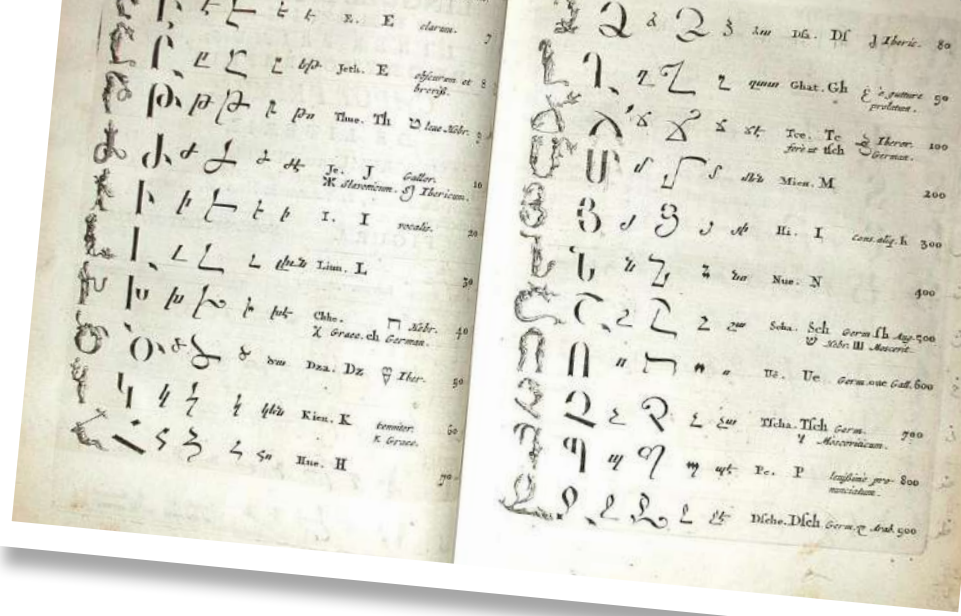 Է է E. E clarum. 7
Ը ը Ը ը ըթ Jeth. E obscurum et 8
breviss.
Թ թ Թ թ թո Thue. Th ט leue Hebr. 9
Ժ ժ Ժ ժ ժէ Je. J Gallor. 10
Ж Slavonicum. Ibericum.
Ի ի Ի ի ի I. I vocalis. 20
Լ լ Լ լ լիւն Liun. L 30
Խ խ Խ խ խէ Chhe. ח Hebr. 40
χ Graec. ch German.
Ծ ծ Ծ ծ ծա Dza. Dz Iber. 50
Կ կ Կ կ կեն Kien. K tenuiter. 60
κ Graec.
Հ հ Հ հ հո Hue. H 70
Ձ ձ Ձ ձ ձա Dſa. Dſ Iberic. 80
Ղ ղ Ղ ղ ղատ Ghat. Gh è gutture 90
prolatum.
Ճ ճ Ճ ճ ճէ Tce. Tc Iberor. 100
ferè ut tſch German.
Մ մ Մ մ մեն Mien. M 200
Յ յ Յ յ յի Hi. I Cons. aliq. h 300
Ն ն Ն ն նու Nue. N 400
Շ շ Շ շ շա Scha. Sch Germ. ſh Ang. 500
ש Hebr. Ш Moscovit.
Ո ո Ո ո ո Ue. Ue Germ. oue Gall. 600
Չ չ Չ չ չա Tſcha. Tſch Germ. 700
Moscoviticum.
Պ պ Պ պ պէ Pe. P leniſſimè pro- 800
nunciatum.
Ջ ջ Ջ ջ ջէ Dſche. Dſch Germ. Arab. 900